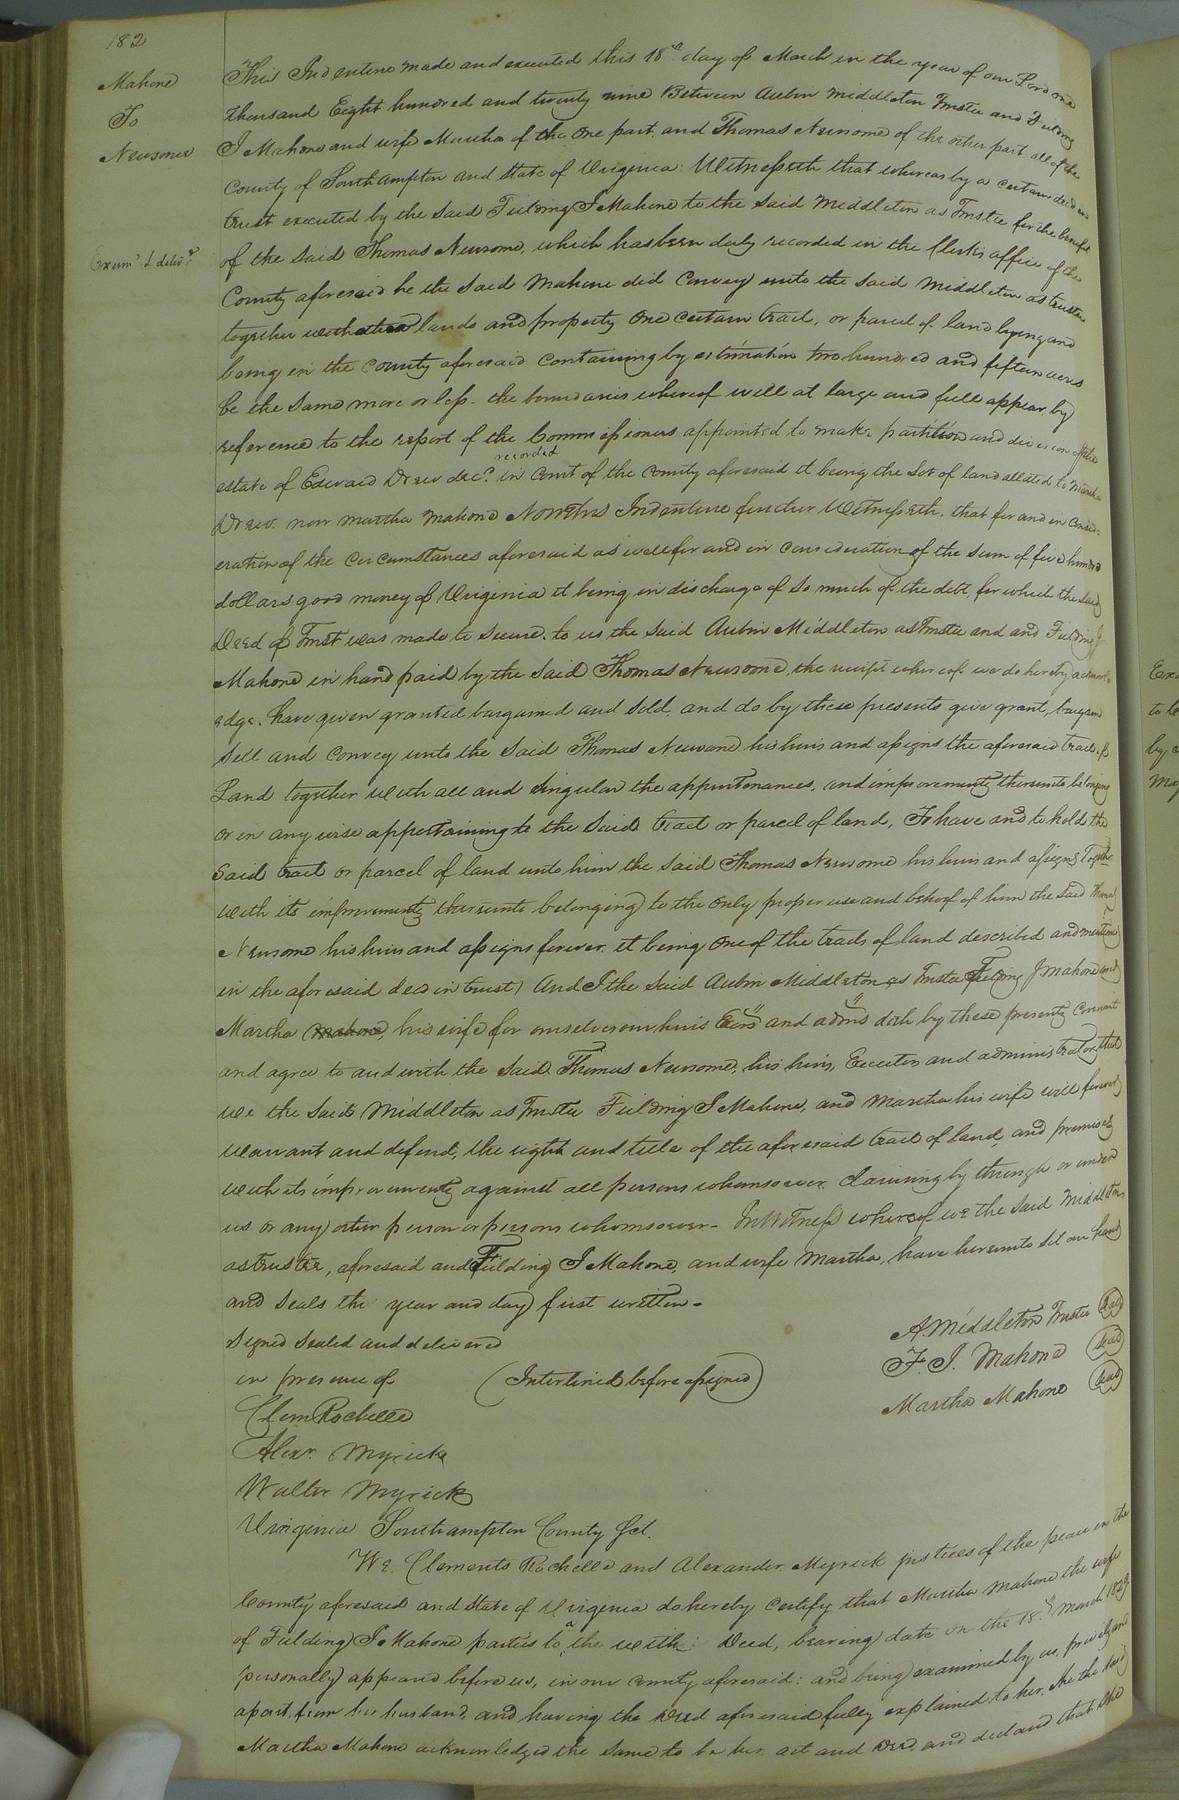 182
Mahone
To
Newsome
Exam.d & deliv.d
This Indenture made and executed this 18th day of March in the year of our Lord one
thousand Eight hundred and twenty nine Between Aubin Middleton Trustee and Fielding
J Mahone and wife Martha of the one part, and Thomas Newsome of the other part all of the
County of Southampton and State of Virginia: Witnesseth that whereas by a certain deed in
trust executed by the said Fielding J Mahone to the said Middleton as Trustee for the benefit
of the said Thomas Newsome, which has been duly recorded in the Clerks office of the
County aforesaid he the said Mahone did convey unto the said Middleton as trustee
together with other lands and property One certain tract, or parcel of land lying and
being in the County aforesaid containing by estimation two hundred and fifteen acres
be the same more or less. the boundaries whereof will at large and full appear by
reference to the report of the Commissioners appointed to make partition and division of the
estate of Edward Drew dec.d recorded in Court of the County aforesaid it being the Lot of land alloted to Martha
Drew. now Martha Mahone Now this Indenture further Witnesseth. that for and in consid-
eration of the circumstances aforesaid as well for and in consideration of the sum of five hundred
dollars good money of Virginia it being in discharge of so much of the debt, for which the said
Deed of Trust was made to secure. to us the said Aubin Middleton as Trustee and and Fielding J
Mahone in hand paid by the said Thomas Newsome, the receipt whereof we do hereby acknowl-
edge. have given granted bargained and sold, and do by these presents give grant, bargain
sell and convey unto the said Thomas Newsome his heirs and assigns the aforesaid tract of
Land together with all and singular the appurtenances, and improvements thereunto belonging
or in any wise appertaining to the said tract or parcel of land, To have and to hold the
said tract or parcel of land unto him the said Thomas Newsome his heirs and assigns together
with its improvements thereunto belonging to the only proper use and behoof of him the said Thomas
Newsome his heirs and assigns forever. it being one of the tracts of land described and mentioned
in the aforesaid deed in trust) And I the said Aubin Middleton as Trustee Fielding J Mahone and
Martha Mahone, his wife for ourselves our heirs Exrs and admrs doth by these presents Covenant
and agree to and with the said Thomas Newsome, his heirs, Executors and administrators, that
we the said Middleton as Trustee Fielding J Mahone, and Martha his wife will forever
warrant and defend, the right and title of the aforesaid tract of land, and premises
with its improvements against all persons whomsoever claiming by through or under
us or any other person or persons whomsoever - In Witness whereof we the said Middleton
as trustee, aforesaid and Fielding J Mahone, and wife Martha, have hereunto set our hands
and seals the year and day first written -
Signed sealed and delivered
in presence of (Interlined before assigned)
A. Middleton Trustee Seal
F. J. Mahone Seal
Martha Mahone Seal
Clem Rochelle
Alexr. Myrick
Walter Myrick
Virginia Southampton County Sct.
We Clements Rochelle and Alexander Myrick justices of the peace in the
County aforesaid and State of Virginia do hereby certify that Martha Mahone the wife
of Fielding J Mahone parties to a the with Deed, bearing date on the 18th March 1829
personally appeared before us, in our County aforesaid: and being examined by us, privily and
apart from her husband, and having the Deed aforesaid fully explained to her. she the said
Martha Mahone acknowledged the same to be her act and Deed. and declared that she